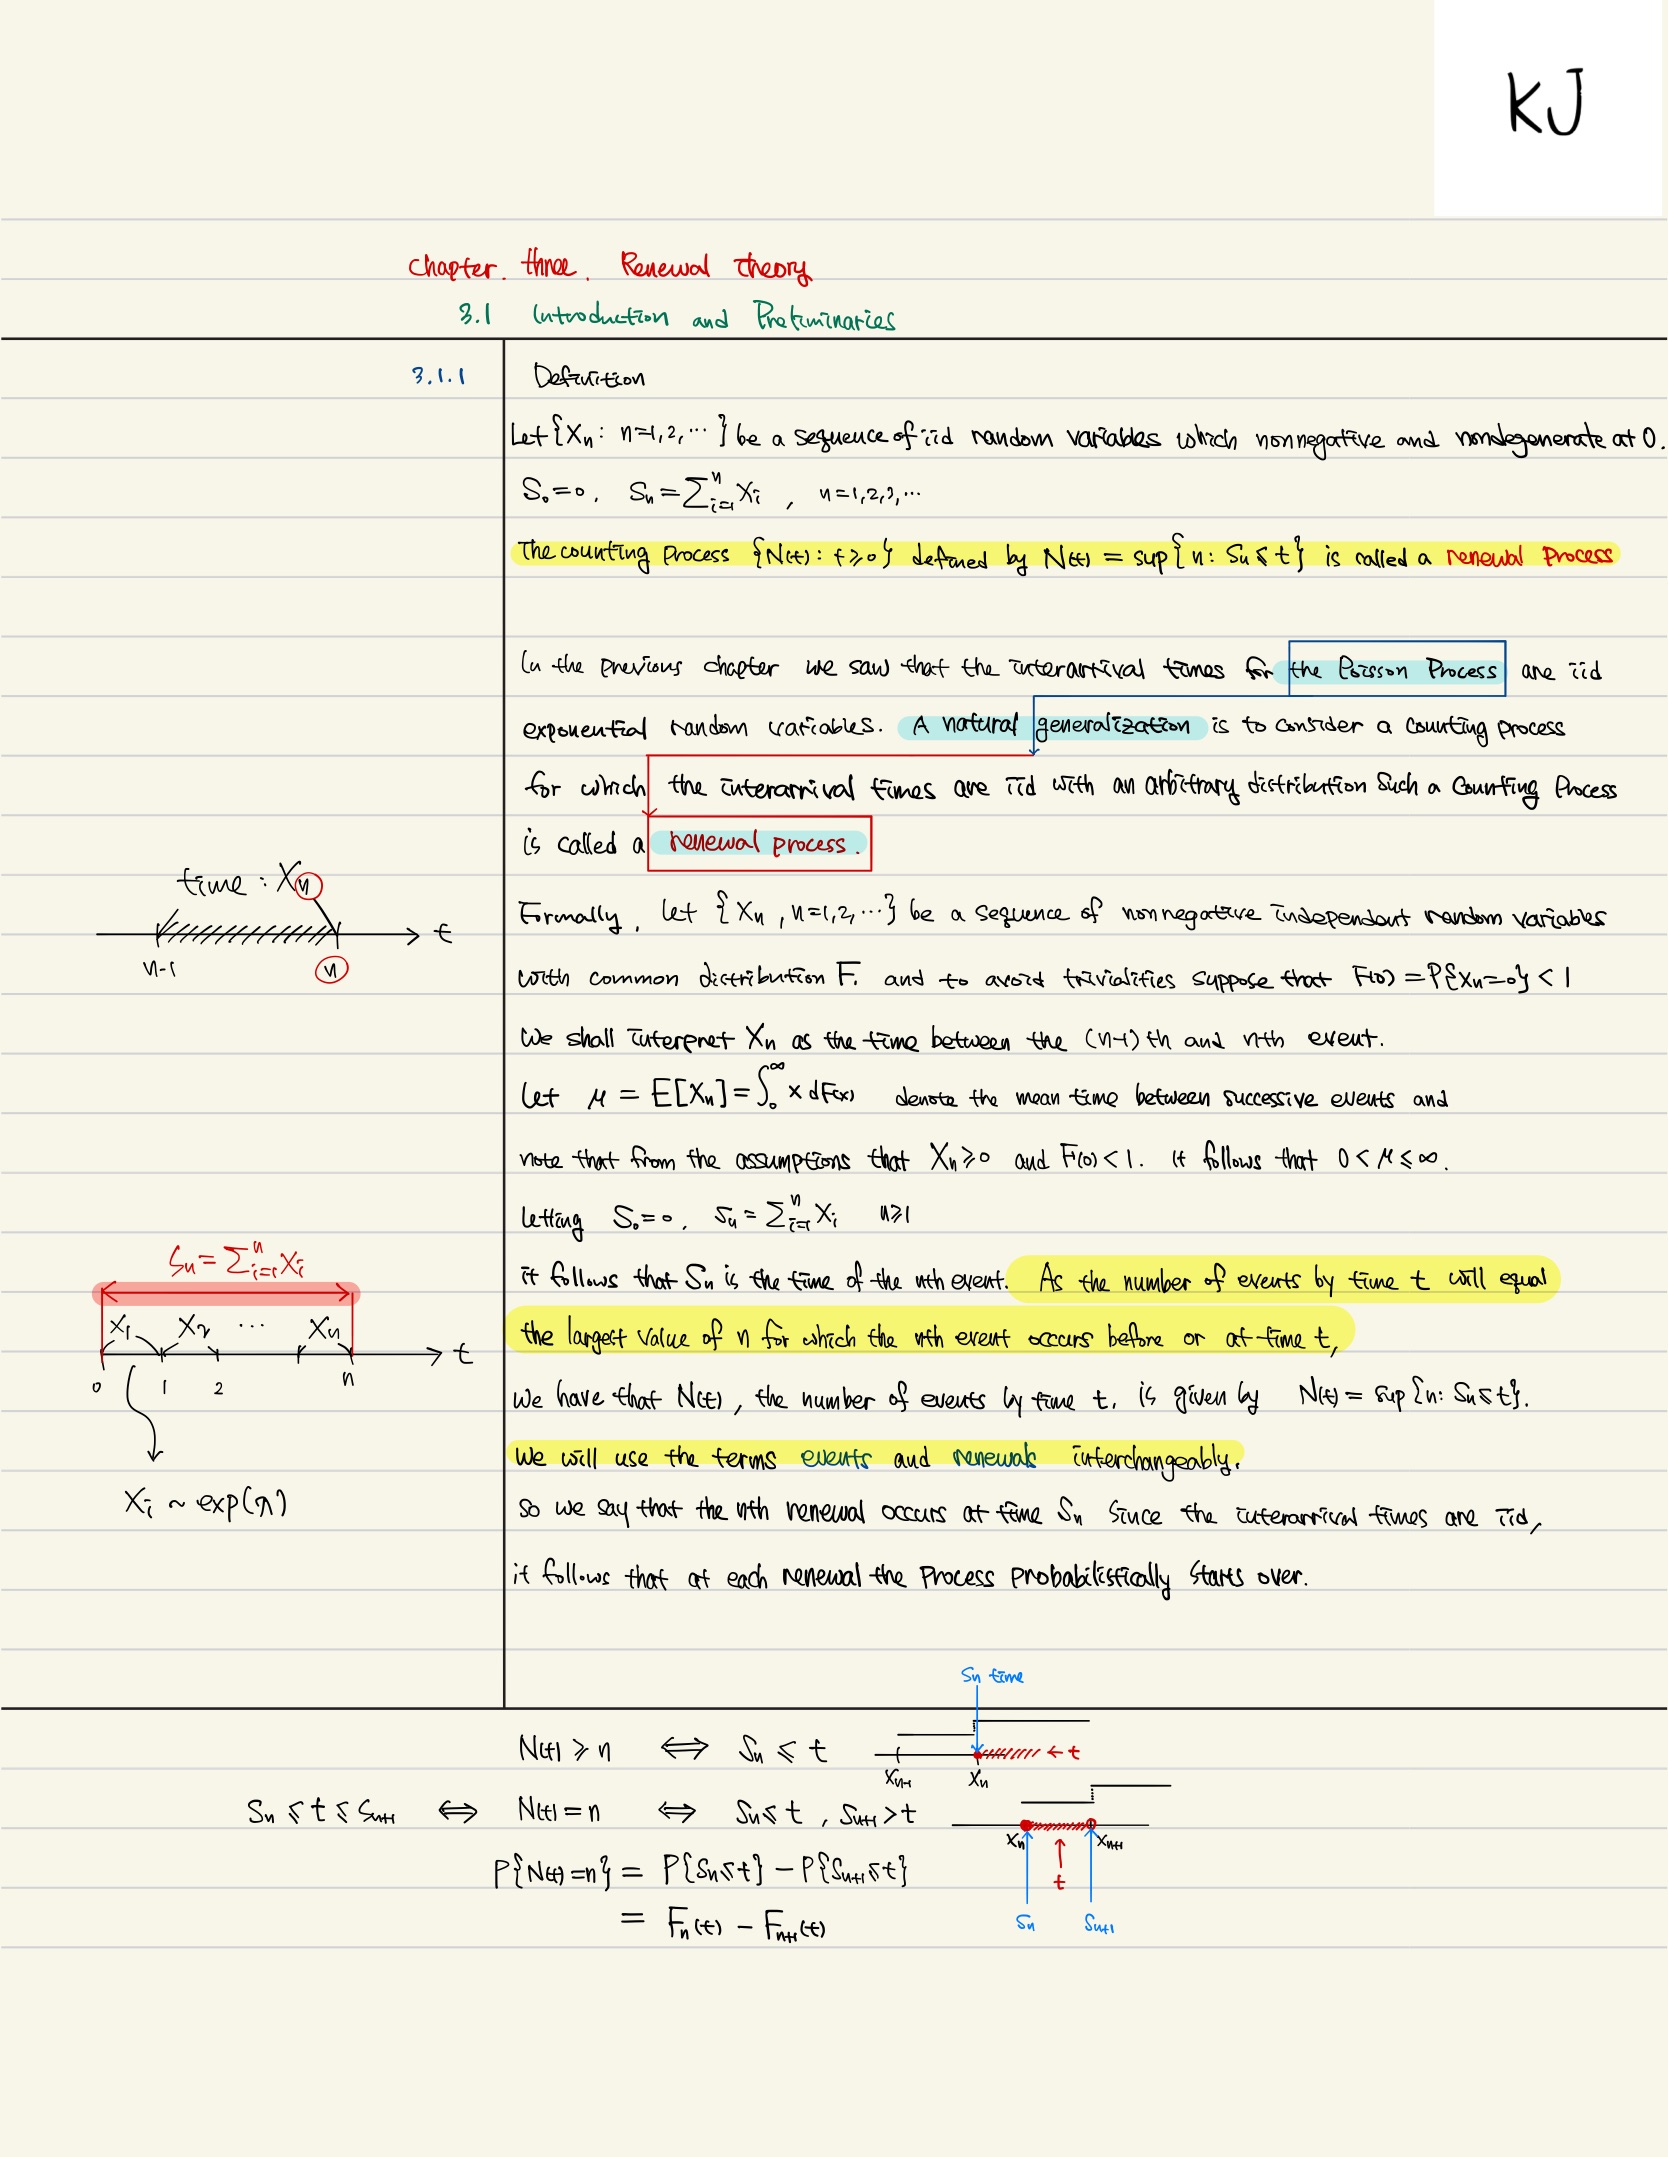 KJ
Chapter. three. Renewal Theory
3.1 Introduction and Preliminaries
3.1.1 Definition
Let {Xn : n=1,2,⋯} be a sequence of iid random variables which nonnegative and nondegenerate at 0.
S₀=0. Sn = ∑ⁿᵢ₌₁ Xi , n=1,2,3,⋯
The counting process {N(t) : t≥0} defined by N(t) = sup{n: Sn≤t} is called a renewal process
In the previous chapter we saw that the interarrival times for the Poisson Process are iid
exponential random variables. A natural generalization is to consider a counting process
for which the interarrival times are iid with an arbitrary distribution Such a Counting Process
is called a renewal process.
time : Xn
n-1 n t
Formally, let {Xn , n=1,2,⋯} be a sequence of nonnegative independent random variables
with common distribution F. and to avoid trivialities suppose that F(0) = P{Xn=0} < 1
We shall interpret Xn as the time between the (n-1)th and nth event.
Let μ = E[Xn] = ∫₀^∞ x dF(x) denote the mean time between successive events and
note that from the assumptions that Xn≥0 and F(0)<1. it follows that 0<μ≤∞.
letting S₀=0. Sn = ∑ⁿᵢ₌₁ Xi n≥1
Sn = ∑ⁿᵢ₌₁ Xi
X₁ X₂ ⋯ Xn
0 1 2 n t
Xi ~ exp(λ)
it follows that Sn is the time of the nth event. As the number of events by time t will equal
the largest value of n for which the nth event occurs before or at time t,
we have that N(t), the number of events by time t. is given by N(t) = sup{n: Sn≤t}.
We will use the terms events and renewals interchangeably.
so we say that the nth renewal occurs at time Sn Since the interarrival times are iid,
it follows that at each renewal the Process probabilistically starts over.
Sn time
N(t) ≥ n ⟺ Sn ≤ t
Xn-1 Xn ← t
Sn ≤ t ≤ Sn+1 ⟺ N(t) = n ⟺ Sn ≤ t , Sn+1 > t
Xn Xn+1
t
Sn Sn+1
P{N(t)=n} = P{Sn≤t} − P{Sn+1≤t}
= Fn(t) − Fn+1(t)